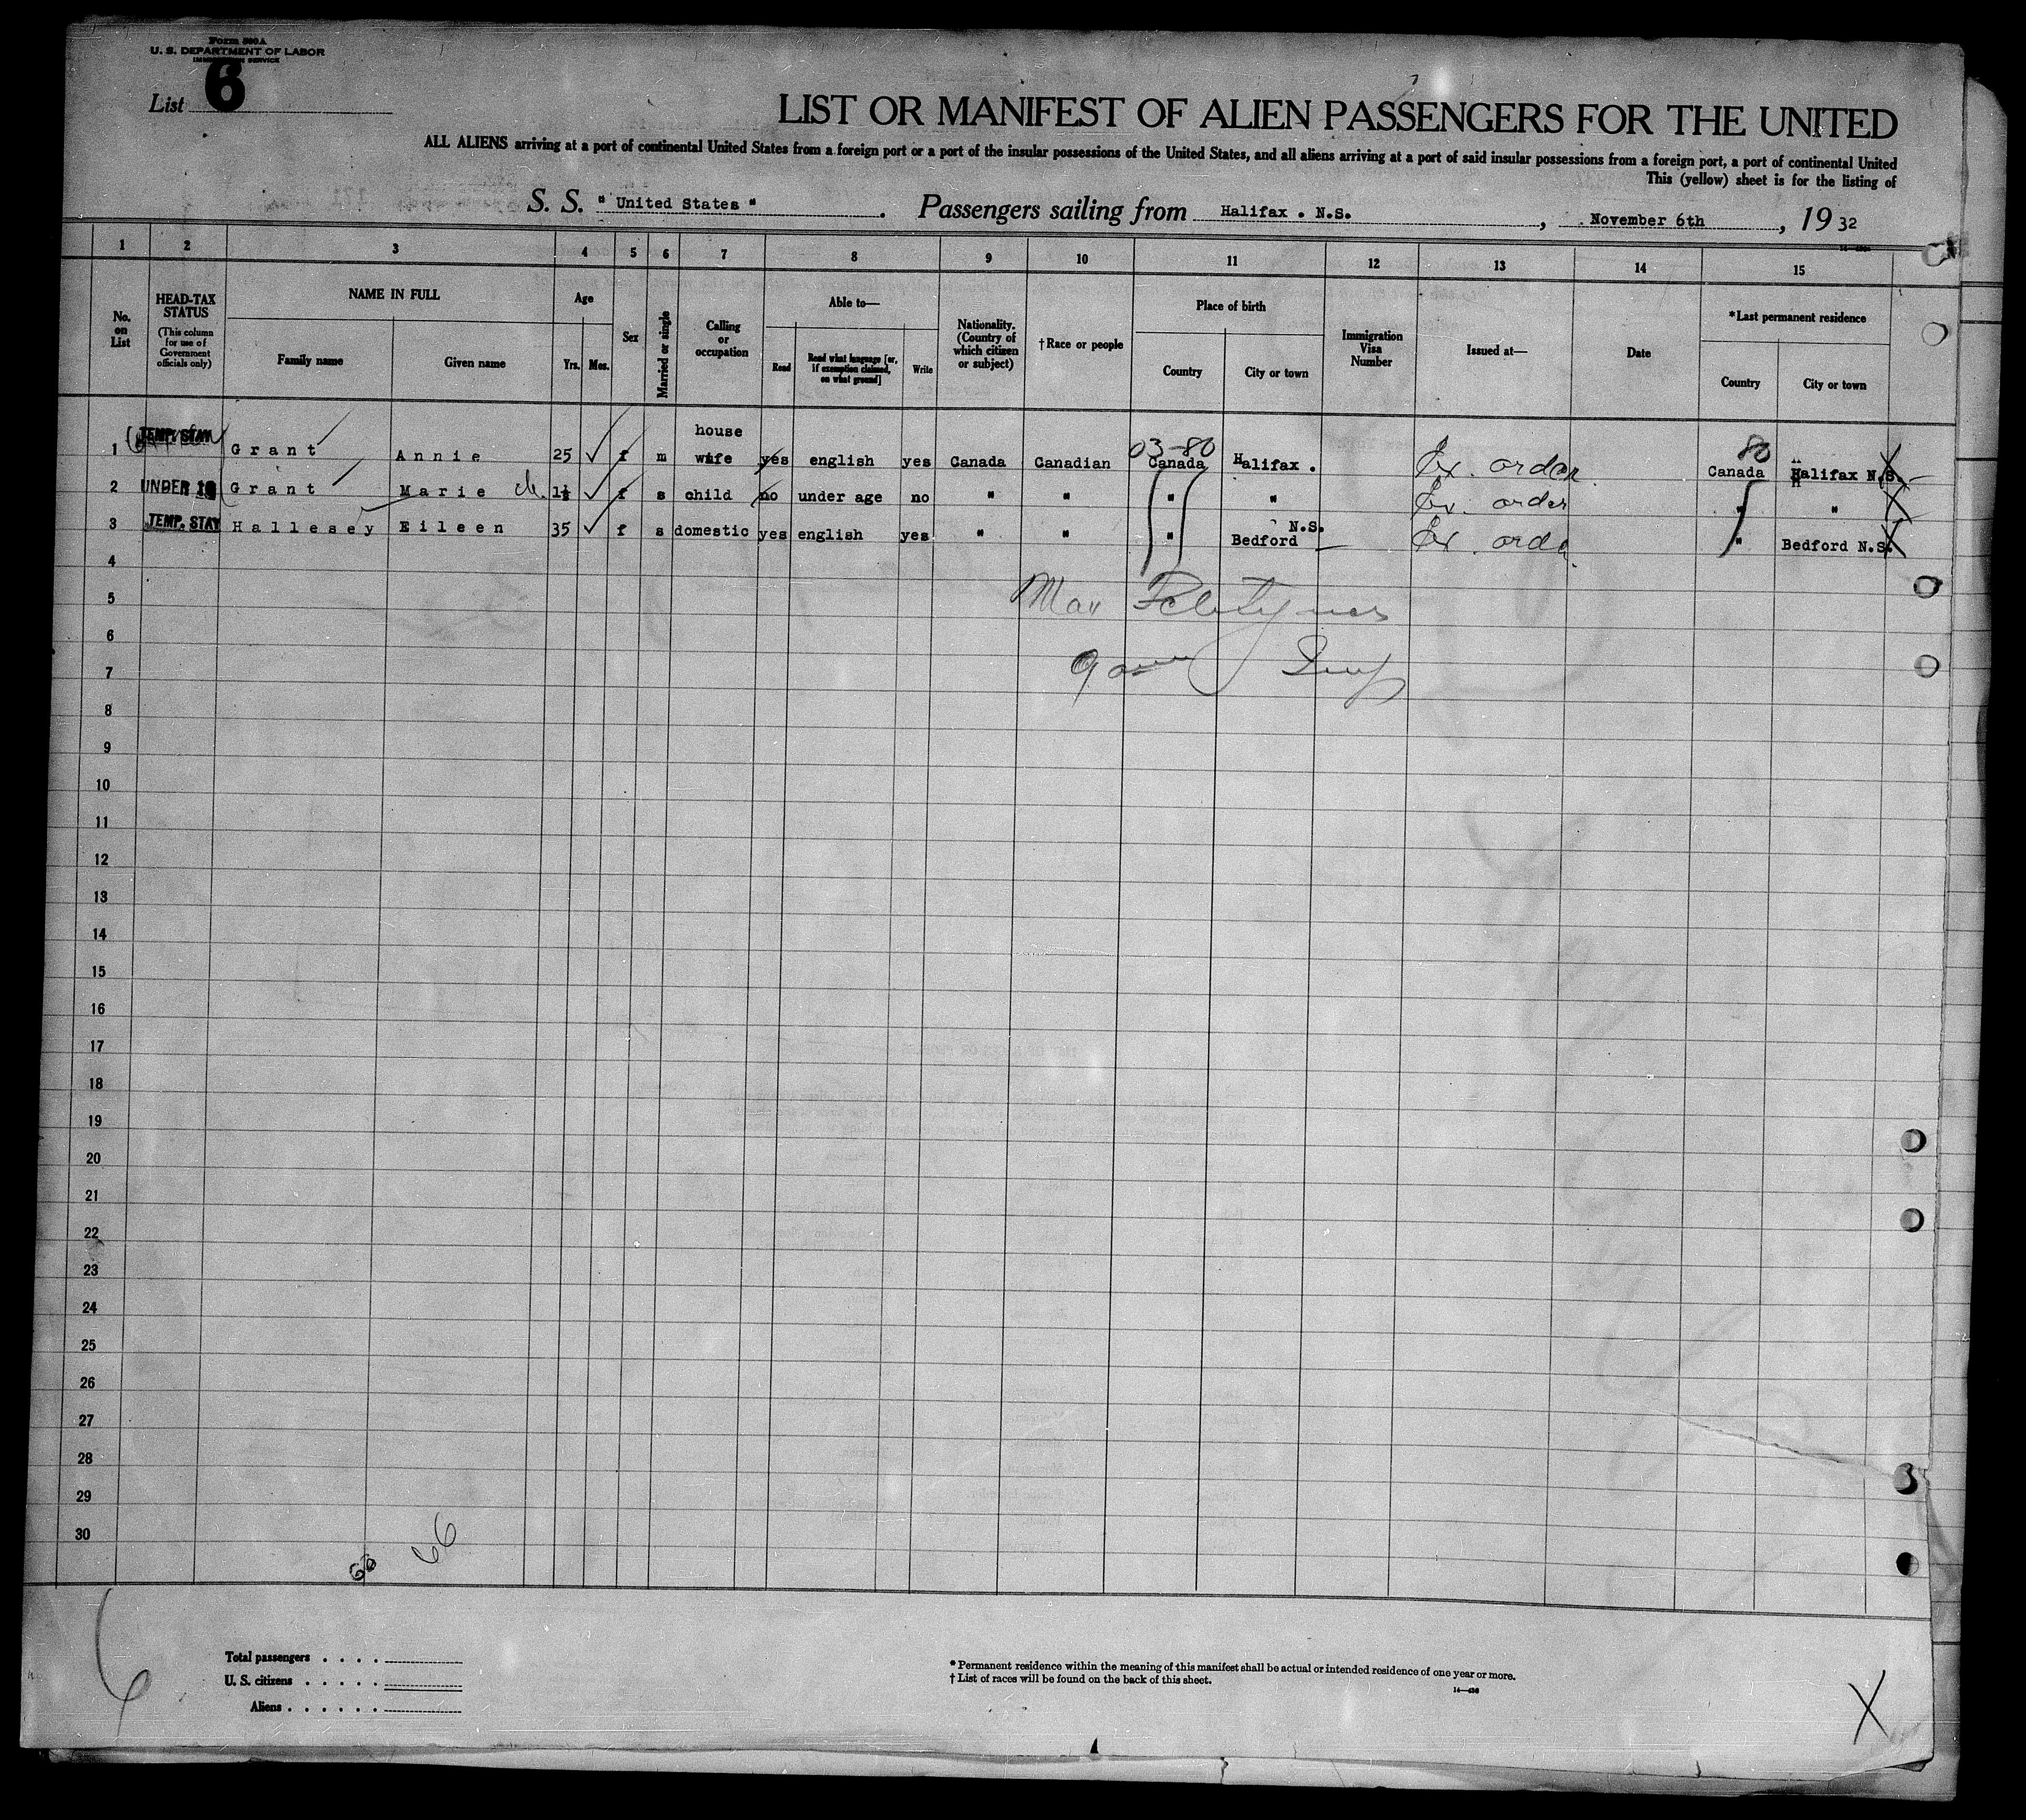 Form 500A
U. S. DEPARTMENT OF LABOR
IMMIGRATION SERVICE
List 6
LIST OR MANIFEST OF ALIEN PASSENGERS FOR THE UNITED
ALL ALIENS arriving at a port of continental United States from a foreign port or a port of the insular possessions of the United States, and all aliens arriving at a port of said insular possessions from a foreign port, a port of continental United
This (yellow) sheet is for the listing of
S. S. "United States". Passengers sailing from Halifax . N.S., November 6th, 1932
1 2 3 4 5 6 7 8 9 10 11 12 13 14 15
No. on List
HEAD-TAX STATUS (This column for use of Government officials only)
NAME IN FULL
Family name
Given name
Age
Yrs.
Mos.
Sex
Married or single
Calling or occupation
Able to—
Read
Read what language [or, if exemption claimed, on what ground]
Write
Nationality. (Country of which citizen or subject)
†Race or people
Place of birth
Country
City or town
Immigration Visa Number
Issued at—
Date
*Last permanent residence
Country
City or town
03-80 80
1 TEMP. STAY Grant Annie 25 f m house wife yes english yes Canada Canadian Canada Halifax . Ex. order Canada Halifax N.S.
2 UNDER 16 Grant Marie M. 1½ f s child no under age no " " " " Ex. order " "
3 TEMP. STAY Hallesey Eileen 35 f s domestic yes english yes " " " Bedford N.S. Ex. order " Bedford N.S.
4
5
6
7
8
9
10
11
12
13
14
15
16
17
18
19
20
21
22
23
24
25
26
27
28
29
30
66 66
6
Total passengers . . . .
U. S. citizens . . . . .
Aliens . . . . . .
* Permanent residence within the meaning of this manifest shall be actual or intended residence of one year or more.
† List of races will be found on the back of this sheet.
X